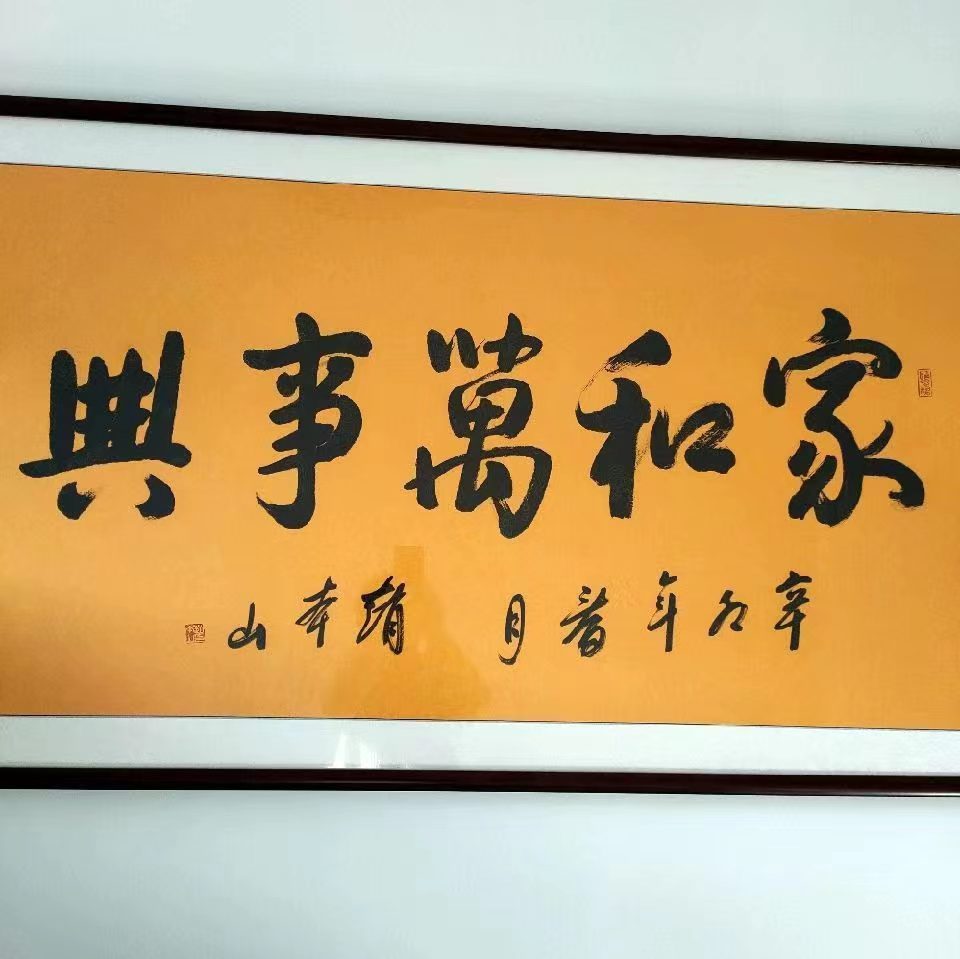 家和萬事興
辛丑年春月 趙本山